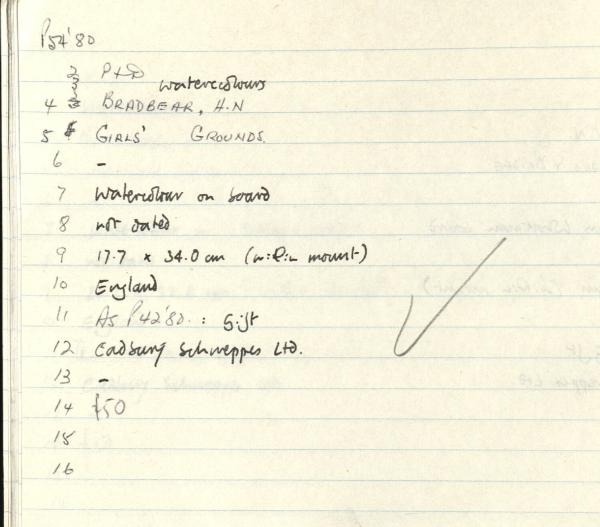 P54'80
2 P+D
3 watercolours
4 BRADBEAR, H.N
5 GIRLS' GROUNDS.
6 -
7 watercolour on board
8 not dated
9 17.7 x 34.0 cm (within mount)
10 England
11 As P42'80. : Gift
12 Cadbury Schweppes Ltd.
13 -
14 £50
15
16